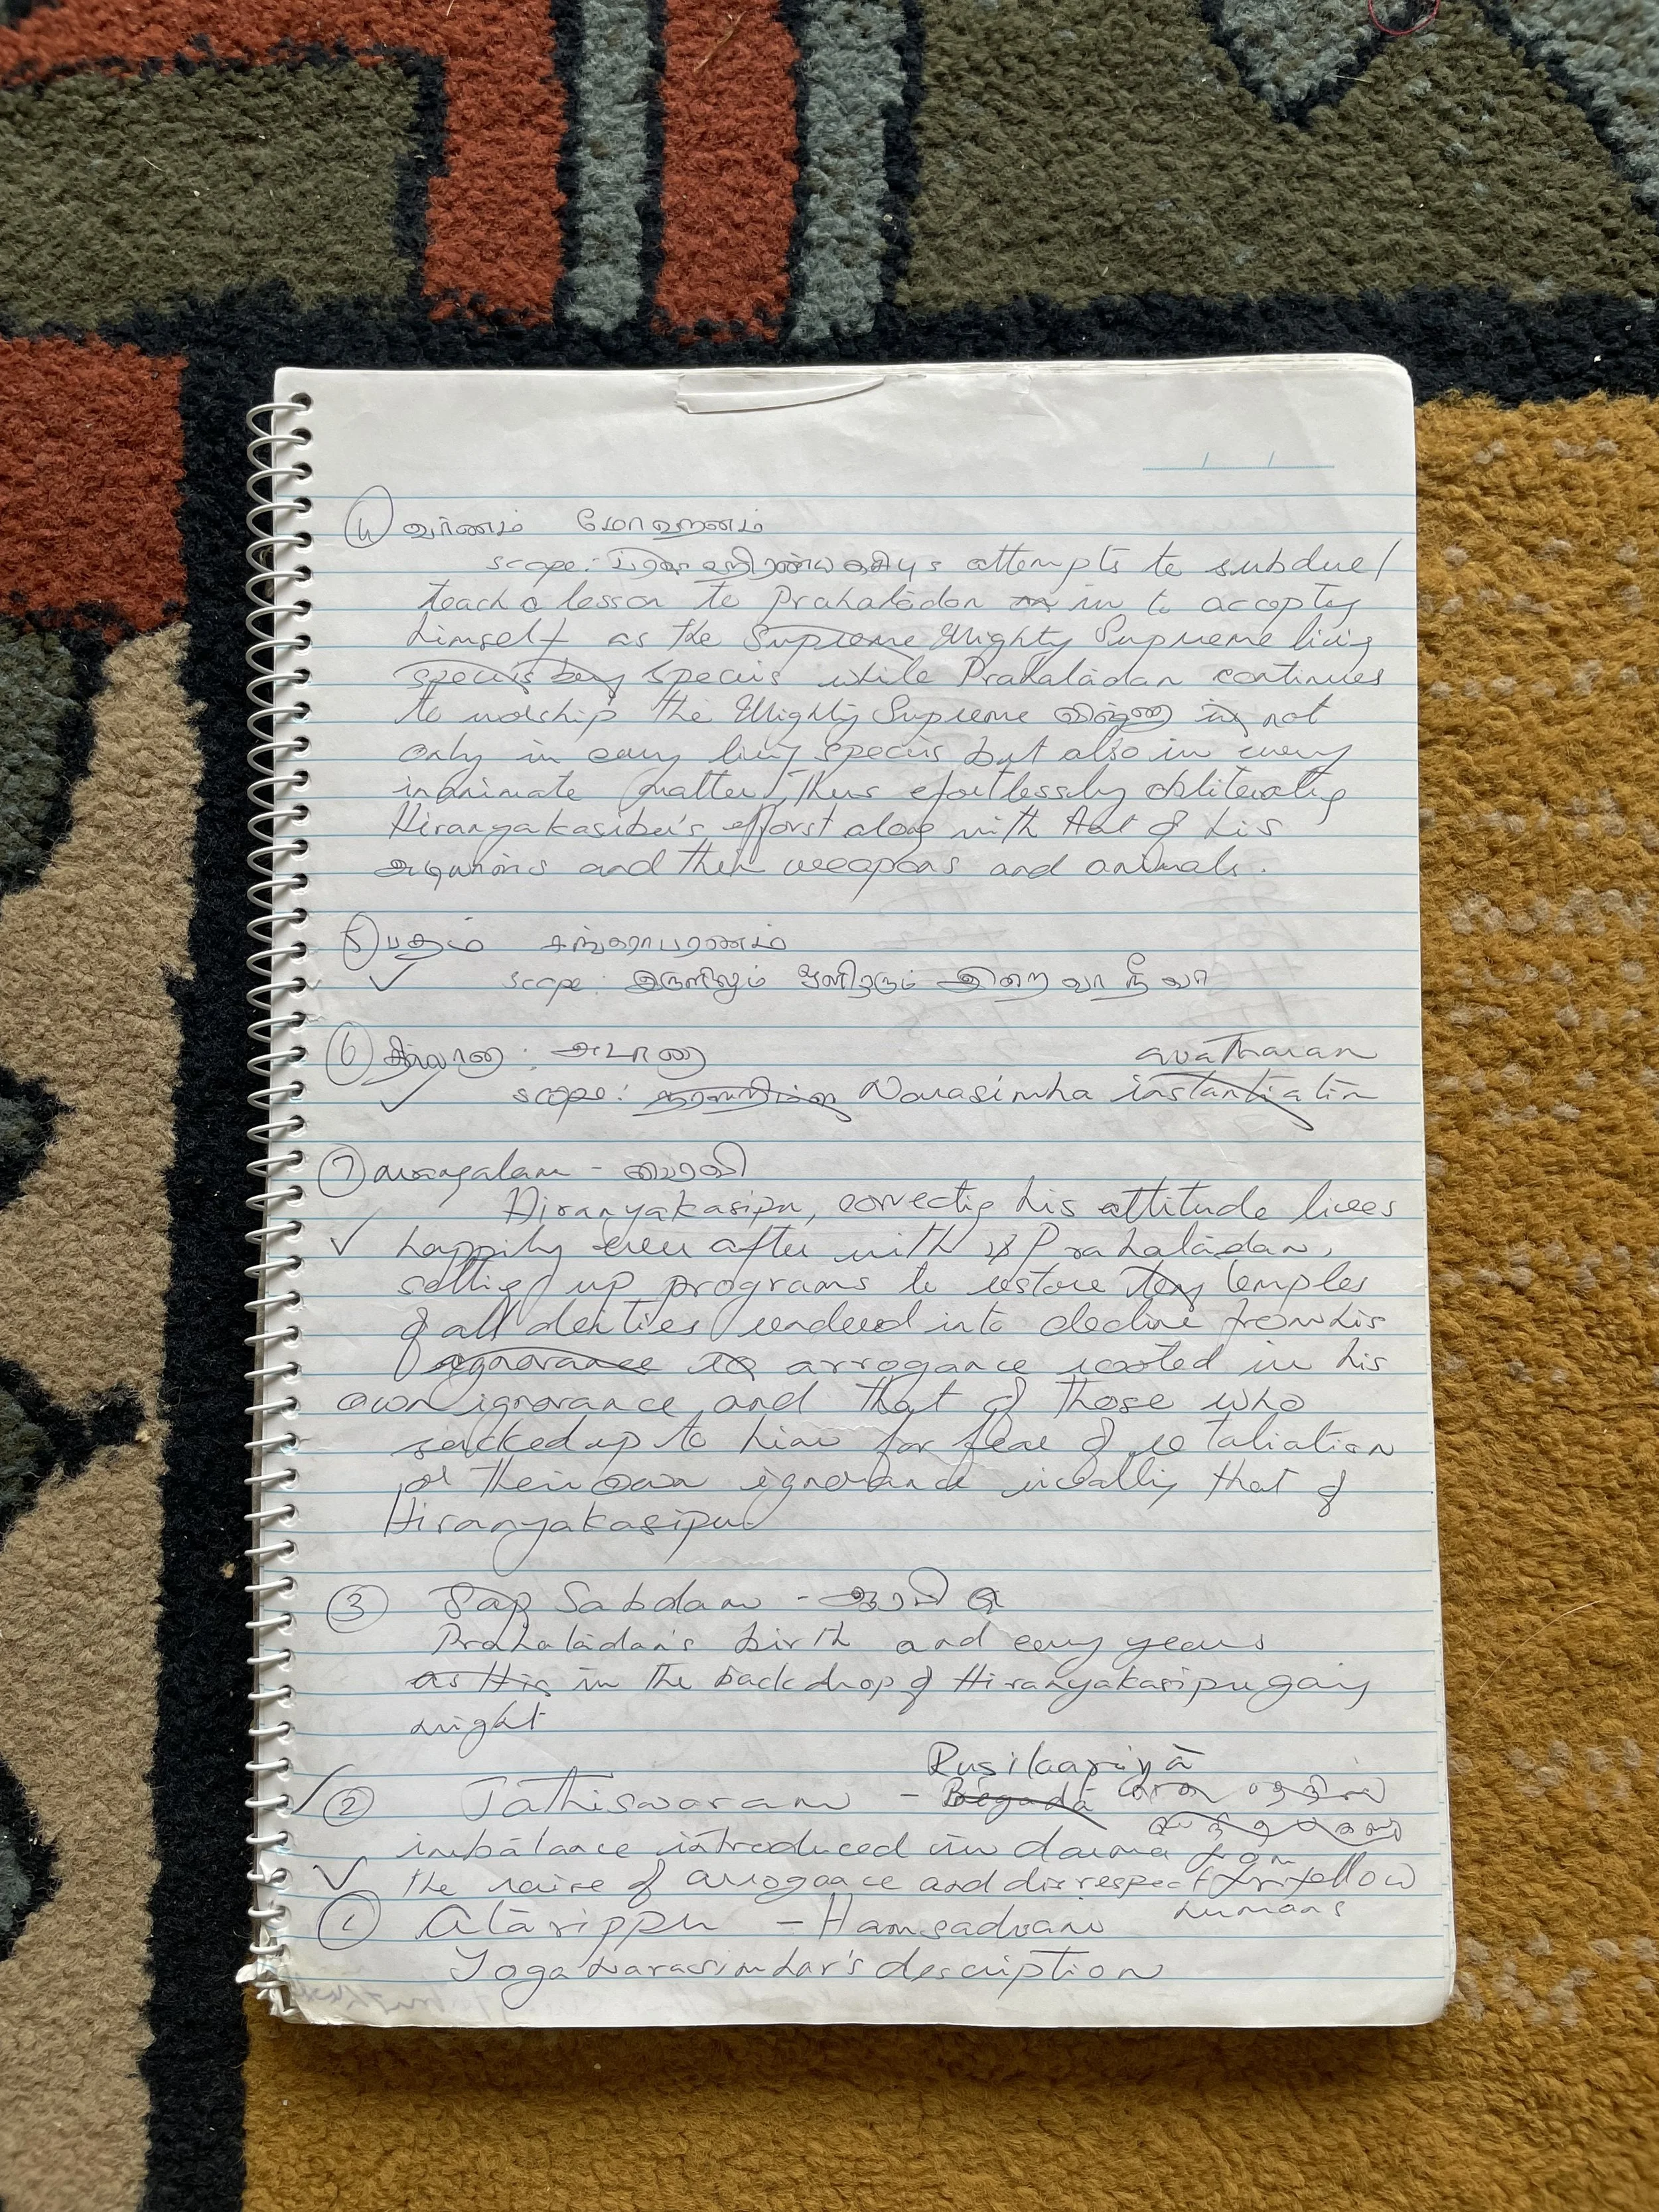 ④ வர்ணம் மோஹனம்
scope: ஹிரண்யகசிபு's attempts to subdue/
teach a lesson to Prahalādan in to accepting
himself as the Supreme Mighty Supreme living
species being species while Prahalādan continues
to worship the Mighty Supreme விஷ்ணு in not
only in every living species but also in every
inanimate matter, Thus effortlessly obliterating
Hiranyakasibu's efforst along with that of his
and their weapons and animals.
⑤ பதம் சங்கராபரணம்
✓ scope: இருளிலும் ஒளிரும் இறைவா நீ வா
⑥ தில்லானா: அடாணா avatharam
✓ scope: நரஸிம்ஹ Narasimha instantiation
⑦ mangalam - பைரவி
Hiranyakasipu, correcting his attitude lives
✓ happily ever after with Prahalādan,
setting up programs to restore temples
of all deities rendered into decline from his
ignorance arrogance rooted in his
own ignorance and that of those who
sucked up to him for fear of retaliation
or their own ignorance that of
Hiranyakasipu
③ Sap Sabdam - ஆரபி
Prahalādan's birth and early years
as His in the backdrop of Hiranyakasipu gaing
might
Rusikapriyā
✓ ② Jathiswaram - Bēgadā
imbalance introduced in darma from
✓ the raise of arrogance and disrespect for fellow
humans
① Alārippu - Hamsadvani
Yoga Narasimhar's description